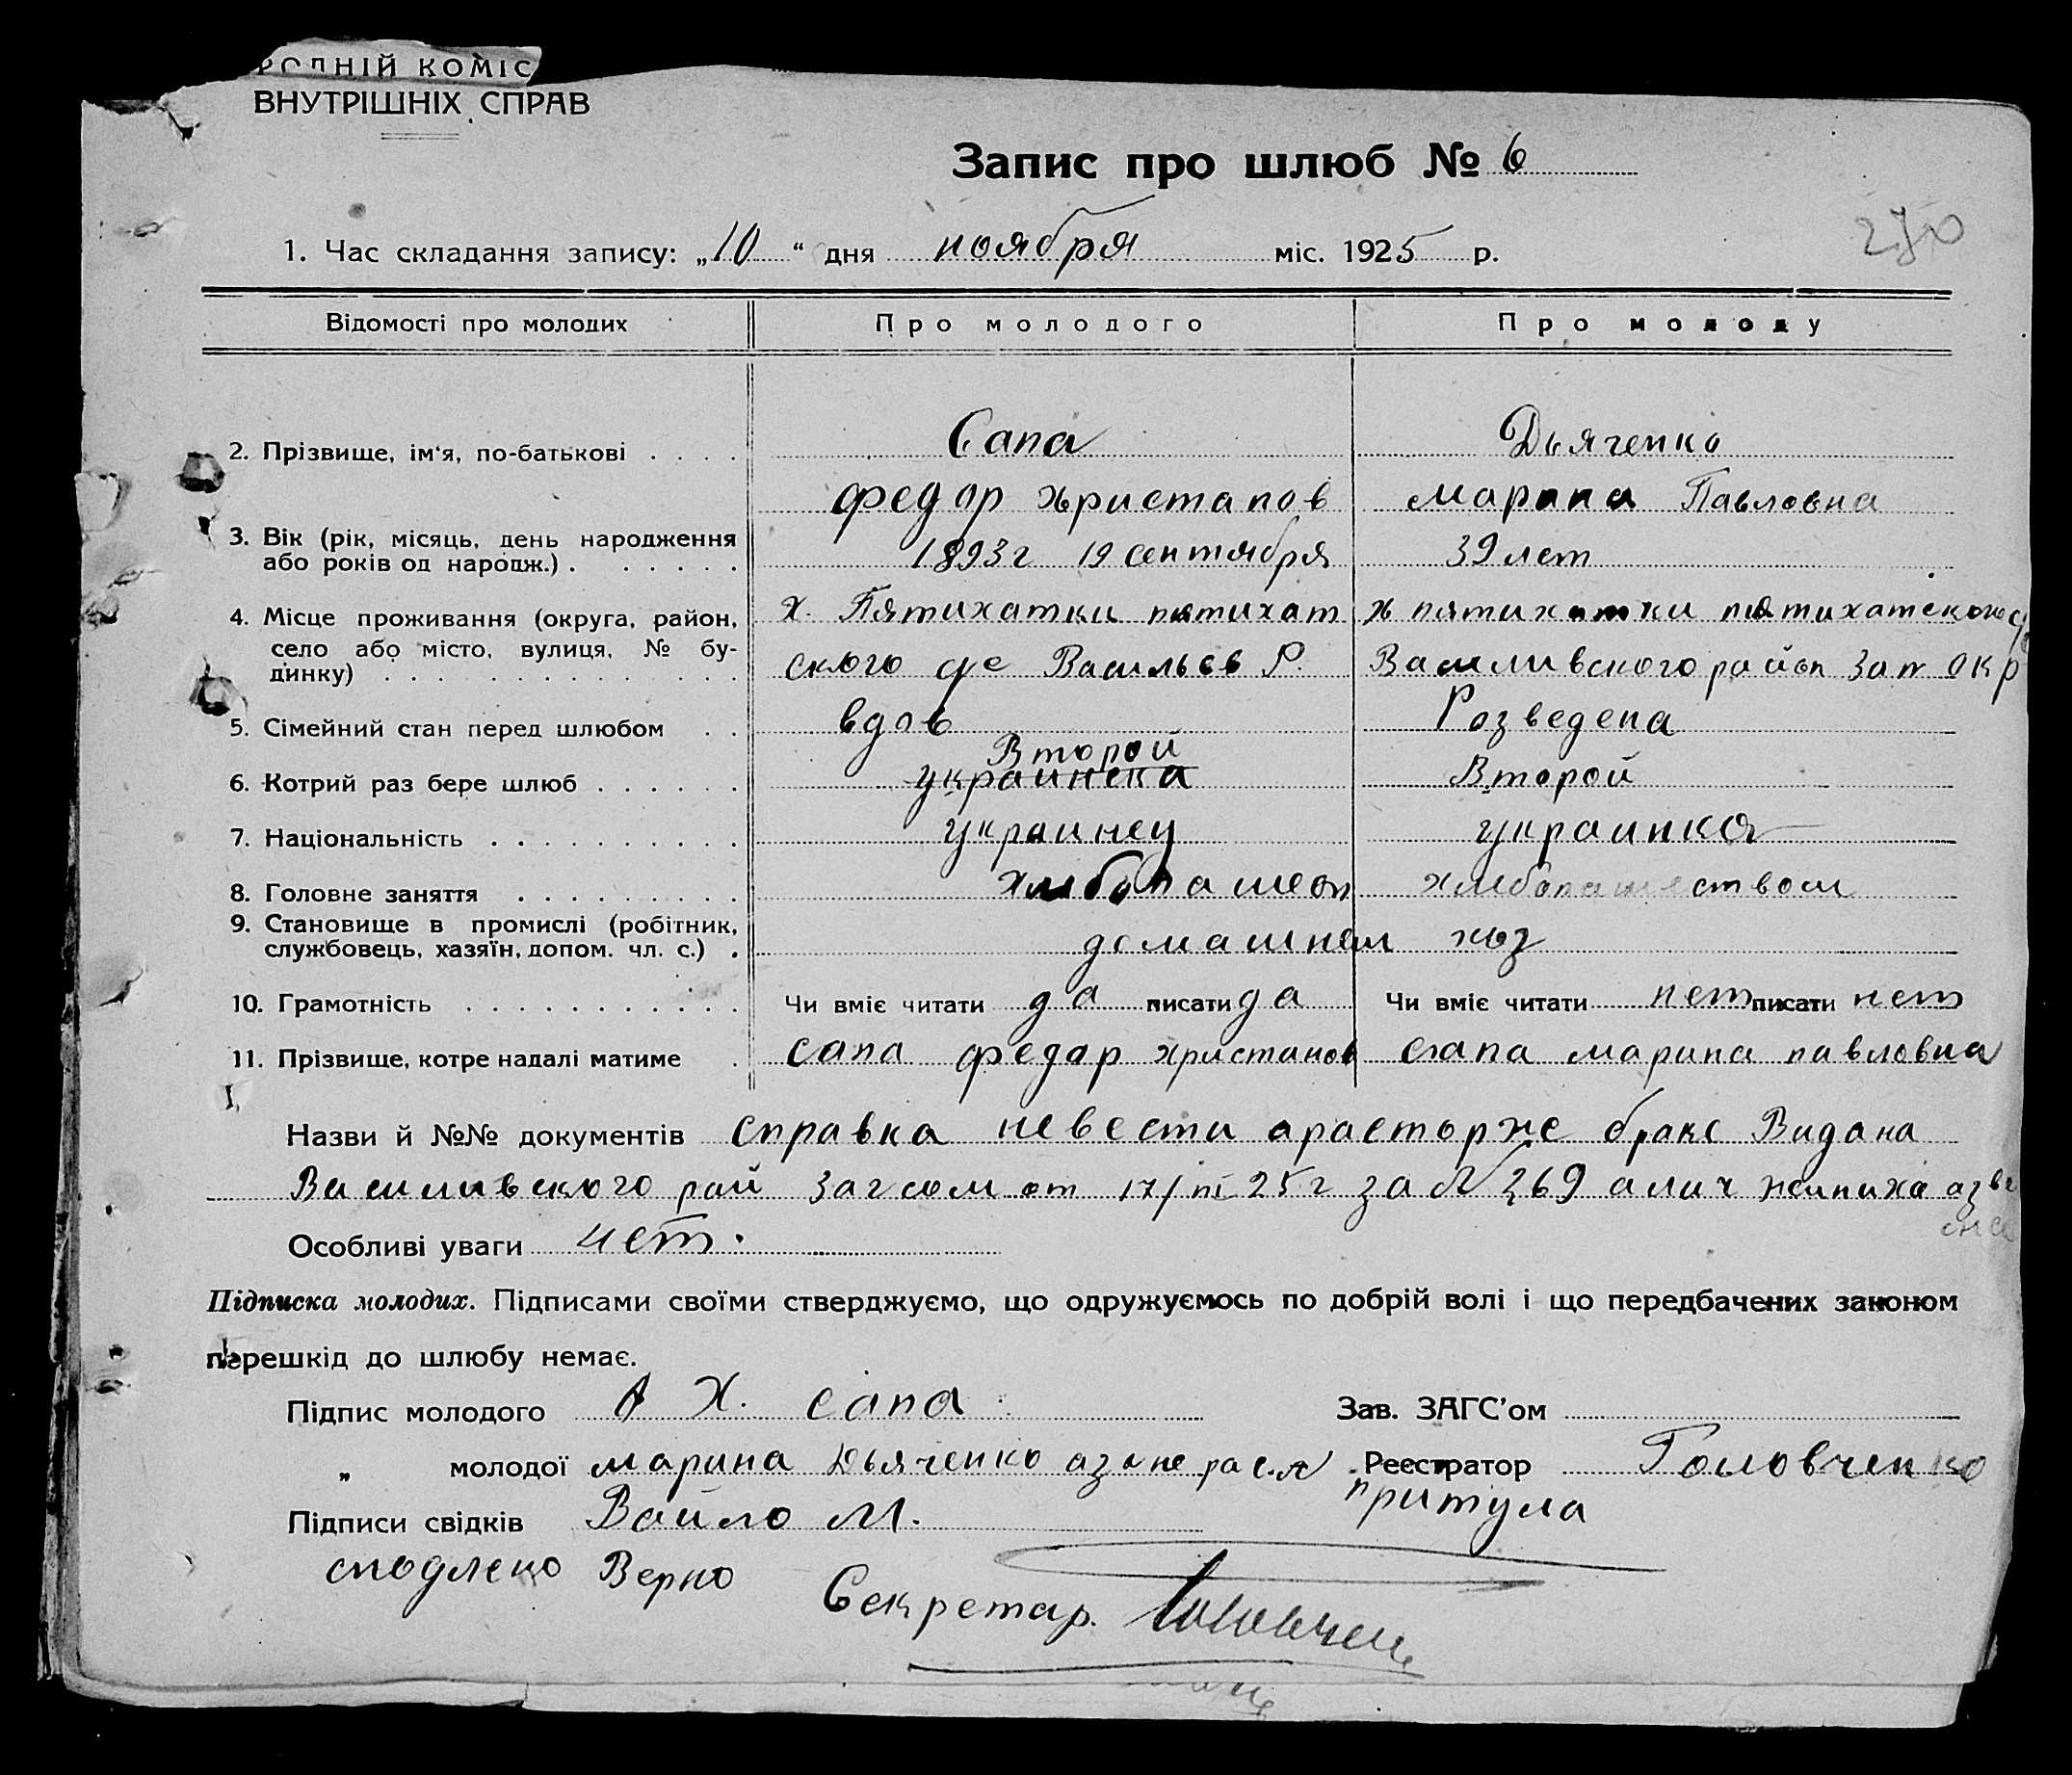 РОДНІЙ КОМІС
ВНУТРІШНІХ СПРАВ
Запис про шлюб № 6
270
1. Час складання запису: „10“ дня ноября міс. 1925 р.
Відомості про молодих Про молодого Про молоду
2. Прізвище, ім'я, по-батькові . . . . Сапа Дьяченко
Федор Христапов Марина Павловна
3. Вік (рік, місяць, день народження або років од народж.) . . . . . . 1893 г 19 сентября 39 лет
4. Місце проживання (округа, район, Х. Пятихатки пятихат х пятихатки пятихатского с/
село або місто, вулиця, № бу- ского с/с Васильев Р. Василивского район Зап окр
динку) . . . . . . . . . . . . . .
5. Сімейний стан перед шлюбом . . вдов Розведена
Второй
6. Котрий раз бере шлюб . . . . . . украинска Второй
7. Національність . . . . . . . . . . украинец украинка
8. Головне заняття . . . . . . . . . хлибопашест хлибопашеством
9. Становище в промислі (робітник,
службовець, хазяїн, допом. чл. с.) . домашнем хоз
10. Грамотність . . . . . . . . . . . Чи вміє читати да писати да Чи вміє читати нет писати нет
11. Прізвище, котре надалі матиме . сапа федар христапов сапа марина павловна
Назви й №№ документів справка невести орасторже брак Видана
Василивского рай Загсом от 17/ 25 г за № 269 а лич жениха
Особливі уваги нет.
Підписка молодих. Підписами своїми стверджуємо, що одружуємось по добрій волі і що передбачених законом
перешкід до шлюбу немає.
Підпис молодого Х. сапа Зав. ЗАГС'ом
„ молодої марина Дьяченко Реєстратор Головченко
Підписи свідків Вайло М. притула
сподлено Верно Секретар.